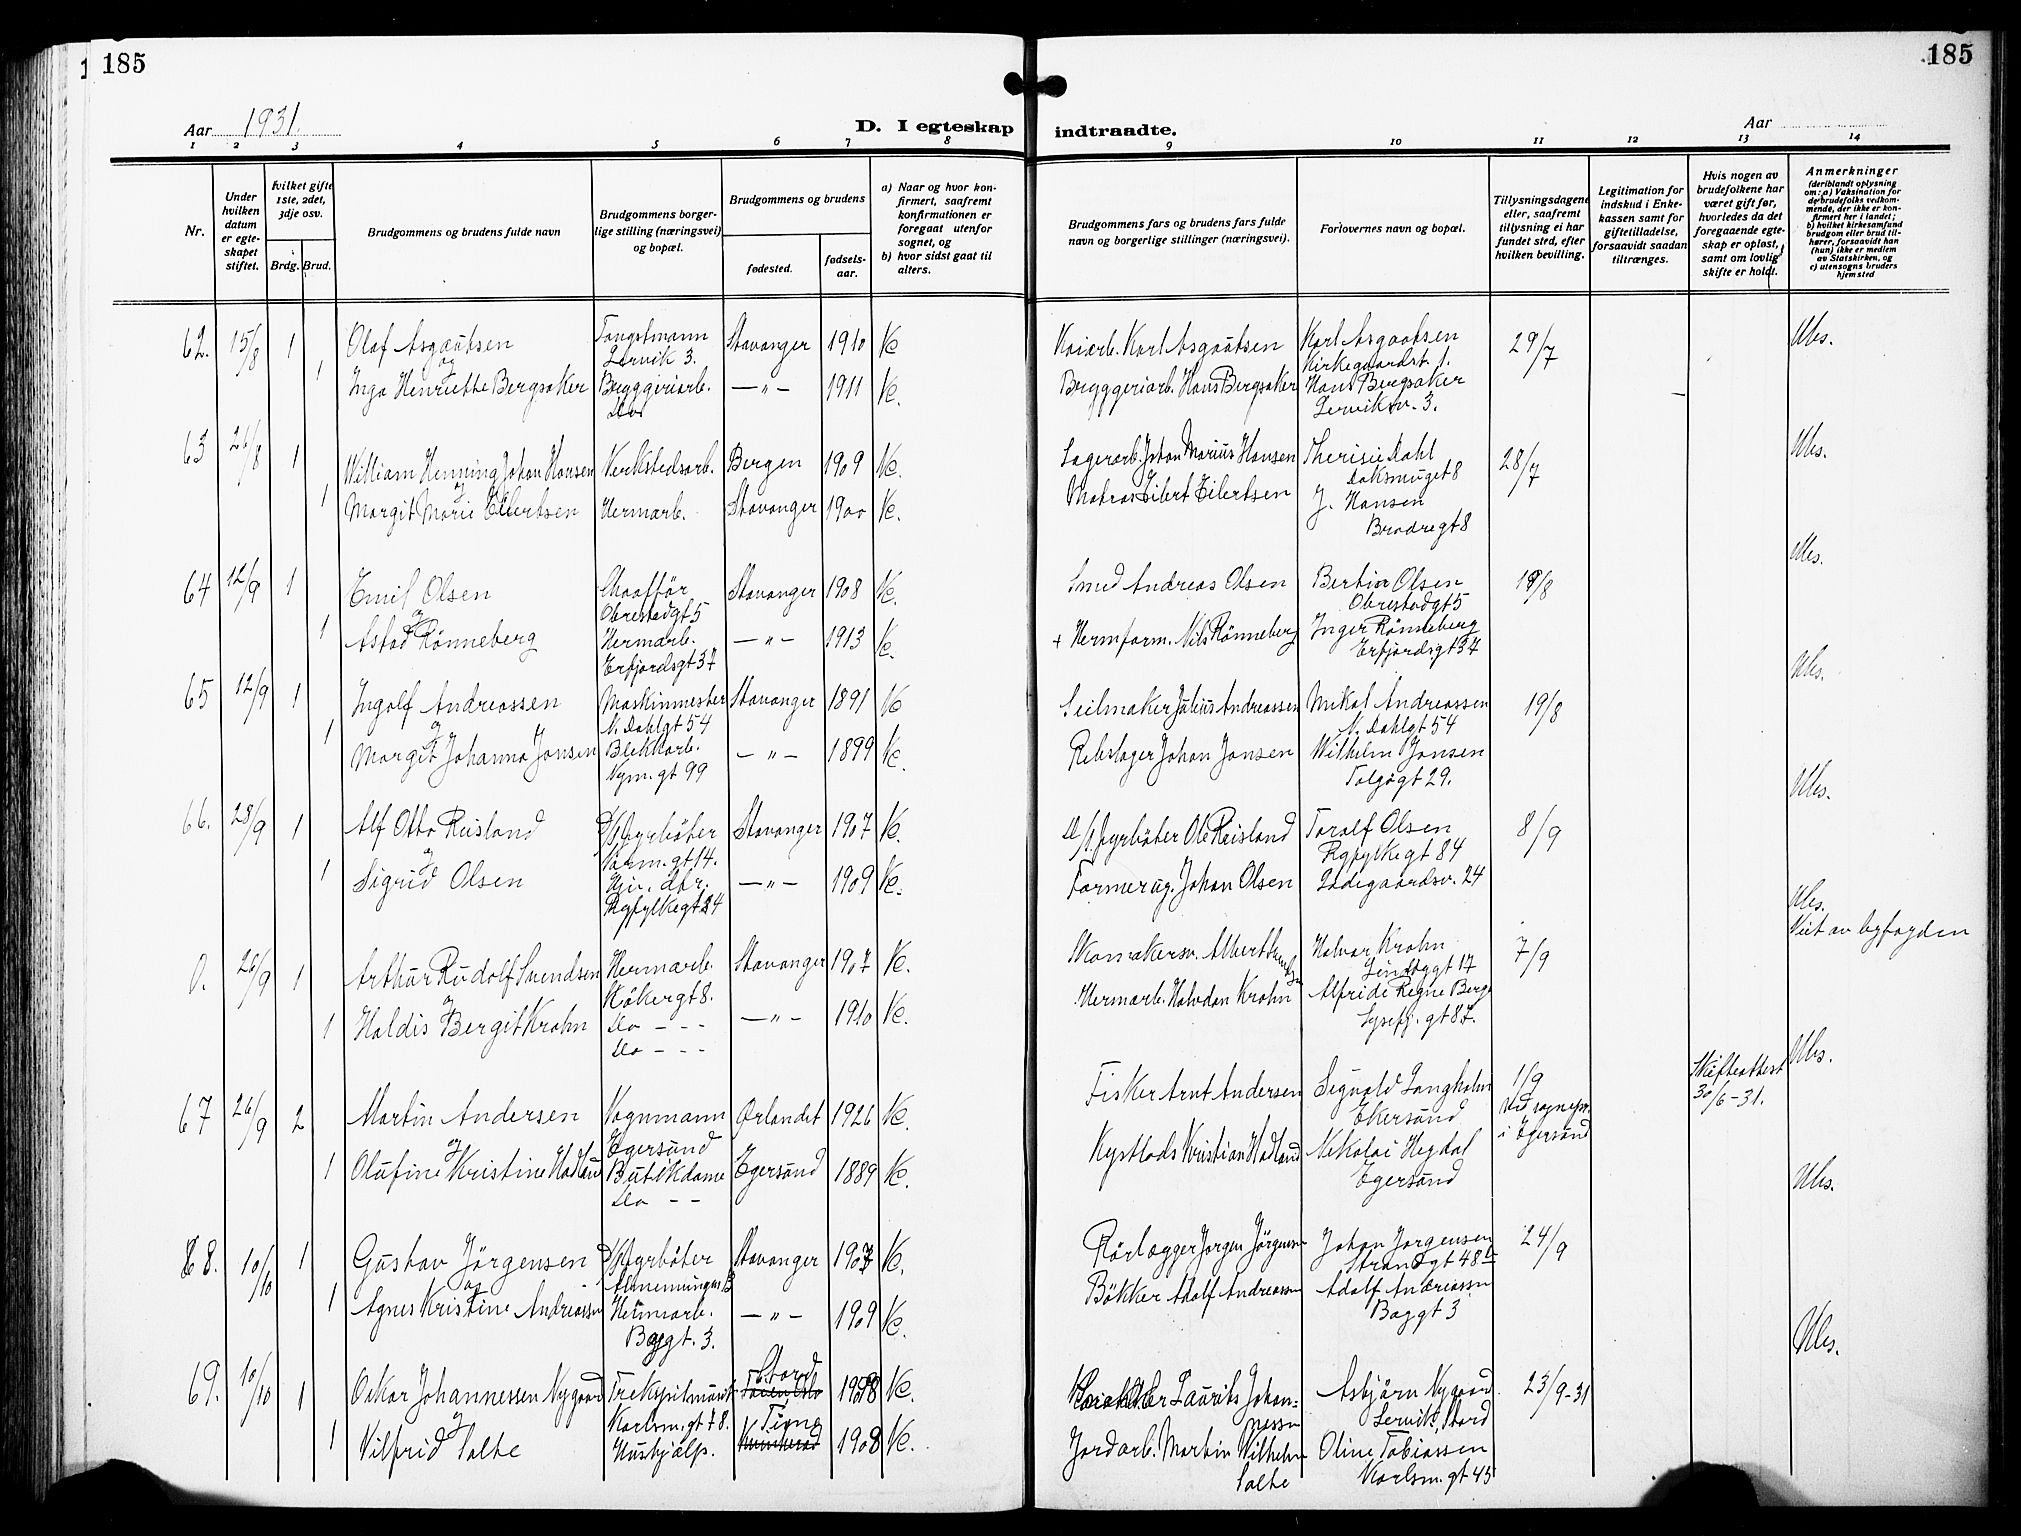 185
185
Aar 1931.
D. I egteskap indtraadte.
Aar
1 2 3 4 5 6 7 8 9 10 11 12 13 14
Nr.
Under hvilken datum er egteskapet stiftet.
Hvilket gifte 1ste, 2det, 3dje osv.
Brdg. Brud.
Brudgommens og brudens fulde navn
Brudgommens borgerlige stilling (næringsvei) og bopæl.
Brudgommens og brudens
fødested.
fødselsaar.
a) Naar og hvor konfirmert, saafremt konfirmationen er foregaat utenfor sognet, og
b) hvor sidst gaat til alters.
Brudgommens fars og brudens fars fulde navn og borgerlige stillinger (næringsvei).
Forlovernes navn og bopæl.
Tillysningsdagene eller, saafremt tillysning ei har fundet sted, efter hvilken bevilling.
Legitimation for indskud i Enkekassen samt for giftetilladelse, forsaavidt saadan tiltrænges.
Hvis nogen av brudefolkene har været gift før, hvorledes da det foregaaende egteskap er opløst, samt om lovlig skifte er holdt.
Anmerkninger (deriblandt oplysning om: a) Vaksination for de brudefolks vedkommende, der ikke er konfirmert her i landet; b) hvilket kirkesamfund brudgom eller brud tilhører, forsaavidt han (hun) ikke er medlem av Statskirken, og c) utensogns bruders hjemsted
62. 15/8 1 Olaf Asgautsen Stavanger 1910 K Kaiarb. Karl Asgautsen Karl Asgautsen 29/7
og Lervik 3. Kirkegaardst. 1.
1 Inga Henriette Bergsaker Bryggeriarb. —"— 1911 K. Bryggeriarb. Hans Bergsaker Hans Bergsaker
Do Lerviksv. 3.
63 26/8 1 William Henning Johan Hansen Verkstedsarb. Bergen 1909 K. Lagerarb. Johan Marius Hansen Therisie Dahl 28/7
og
1 Margit Marie Eilertsen Hermarb. Stavanger 1900 K. Matros Eilert Eilertsen J. Hansen
Bradregt 8
64 12/9 1 Emil Olsen Chaufför Stavanger 1908 K. Smed Andreas Olsen Olsen 19/8
og Obrestadgt 5 Obrestadgt 5
1 Astad Rönneberg Hermarb. —"— 1913 K. + Hermform. Nils Rönneberg Inger Rönneberg
Erfjordsgt 37 Erfjordsgt 37
65 12/9 1 Ingolf Andreassen Maskinmester Stavanger 1891 K Seilmaker Julius Andreassen Mikal Andreassen 19/8
og N. Dahlgt 54 N. Dahlgt 54
1 Margit Johanna Jonsen Blekkarb. —"— 1899 K. Rebslager Johan Jonsen Wilhelm Jonsen
Nym. gt 99 Tolgögt 29.
66. 28/9 1 Alf Otto Reisland D/S fyrböter Stavanger 1907 K. D/S fyrböter Ole Reisland Toralf Olsen 8/9
og Varm. gt 14. Rgfylkegt 84
1 Sigrid Olsen —"— 1909 K. Johan Olsen Ladegaardsv. 24
Rgfylkegt 84
Viet av byfogden
0. 26/9 1 Arthur Rudolf Svendsen Hermarb. Stavanger 1907 K. Skomakersv. Albert Svendsen Halvar Krohn 7/9
og Kökergt 8. gt 17
1 Haldis Bergit Krohn Do - - - —"— 1910 K. Hermarb. Halvdan Krohn Alfride Regne Berg
Do - - - Lysefj. gt 87.
67 26/9 2 Martin Andersen Vognmann Ørlandet 1926 K. Fisker Arnt Andersen Sigvald Langholm 1/9 Skifteattest 30/6-31.
og Egersund Ekersund i Egersund
1 Olufine Kristine Hadland Butikdame Egersund 1889 K. Kystlods Kristian Hadland Nikolai Hegdal
Do - - Egersund
68. 10/10 1 Gustav Jörgensen D/S fyrböter Stavanger 1907 K. Rörlægger Jørgen Jörgensen Johan Jørgensen 24/9
og Strandgt 48
1 Agnes Kristine Andreassen Hermarb. —"— 1909 K. Bökker Adolf Andreassen Adolf Andreassen
Baggt. 3. Baggt 3
69. 10/10 1 Oskar Johannessen Nygaard Trekspilmusik. Stord 1908 K. Laurits Johannessen Asbjörn Nygaard 23/9-31
og Karlsm. gt 48. Lervik, Stord
1 Vilfrid Salte Hushjælp. Time 1908 K. Jordarb. Martin Wilhelm Salte Oline Tobiassen
Karlsm. gt 45